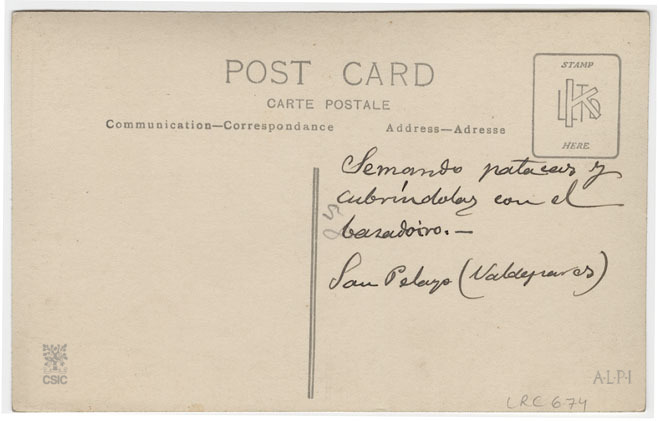 POST CARD
CARTE POSTALE
Communication—Correspondance
Address—Adresse
STAMP
LKTD
HERE
Semando patacas y
cubríndolas con el
basadoiro.—
San Pelayo (Valdepares)
CSIC
A·L·P·I
LRC 6-74